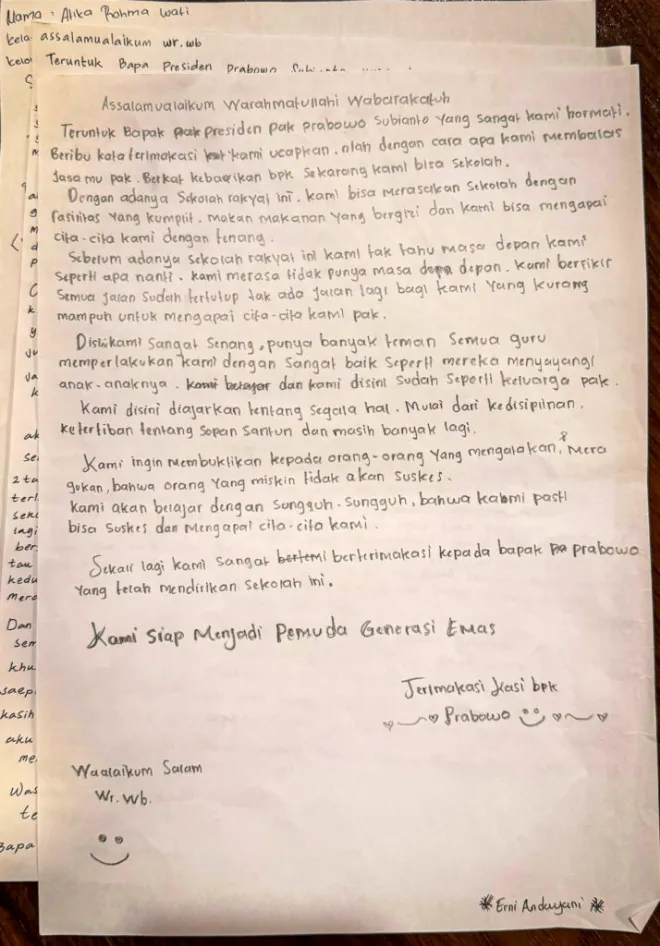 Nama : Alika Rohma Wati
kela
kelo
assalamualaikum wr.wb
Teruntuk Bapa Presiden Prabowo Subianto
Assalamualaikum Warahmatullahi Wabarakatuh
Teruntuk Bapak pak presiden pak prabowo Subianto yang sangat kami hormati.
Beribu kata terimakasi kami ucapkan. ntah dengan cara apa kami membalas
Jasa mu pak. Berkat kebaqikan bpk Sekarang kami bisa sekolah.
Dengan adanya Sekolah rakyat ini. kami bisa merasakan Sekolah dengan
Fasinitas yang kumplit. makan makanan yang bergizi dan kami bisa mengapai
cita-cita kami dengan tenang.
Sebelum adanya sekolah rakyat ini kami tak tahu masa depan kami
Seperti apa nanti. kami merasa tidak punya masa depa depan. kami berfikir
Semua jalan Sudah tertutup tak ada jalan lagi bagi kami yang kurang
mampuh untuk mengapai cita-cita kami pak.
Disini kami sangat Senang, punya banyak teman Semua guru
memperlakukan kami dengan sangat baik Seperti mereka menyayangi
anak-anaknya. kami belajar dan kami disini sudah Seperti keluarga pak.
Kami disini diajarkan tentang Segala hal. Mulai dari kedisiplnan,
ketertiban tentang Sopan Santun dan masih banyak lagi.
Kami ingin membuktikan kepada orang-orang yang mengatakan, & Mera
gukan, bahwa orang yang miskin tidak akan Suskes.
kami akan belajar dengan Sungguh-Sungguh, bahwa kabmi pasti
bisa Suskes dan mengapai cita-cita kami.
Sekali lagi kami sangat bertemi berterimakasi kepada bapak pa prabowo
yang telah mendirikan sekolah ini.
Kami Siap Menjadi Pemuda Generasi Emas
Terimakasi kasi bpk
Prabowo
Waalaikum Salam
Wr. Wb.
Erni Andayani
ak
se
2 ta
terl
seko
lagi
ber
tau
kedu
mera
Dan
sem
khu
saep
kasih
aku
me
Was
te
Bapa